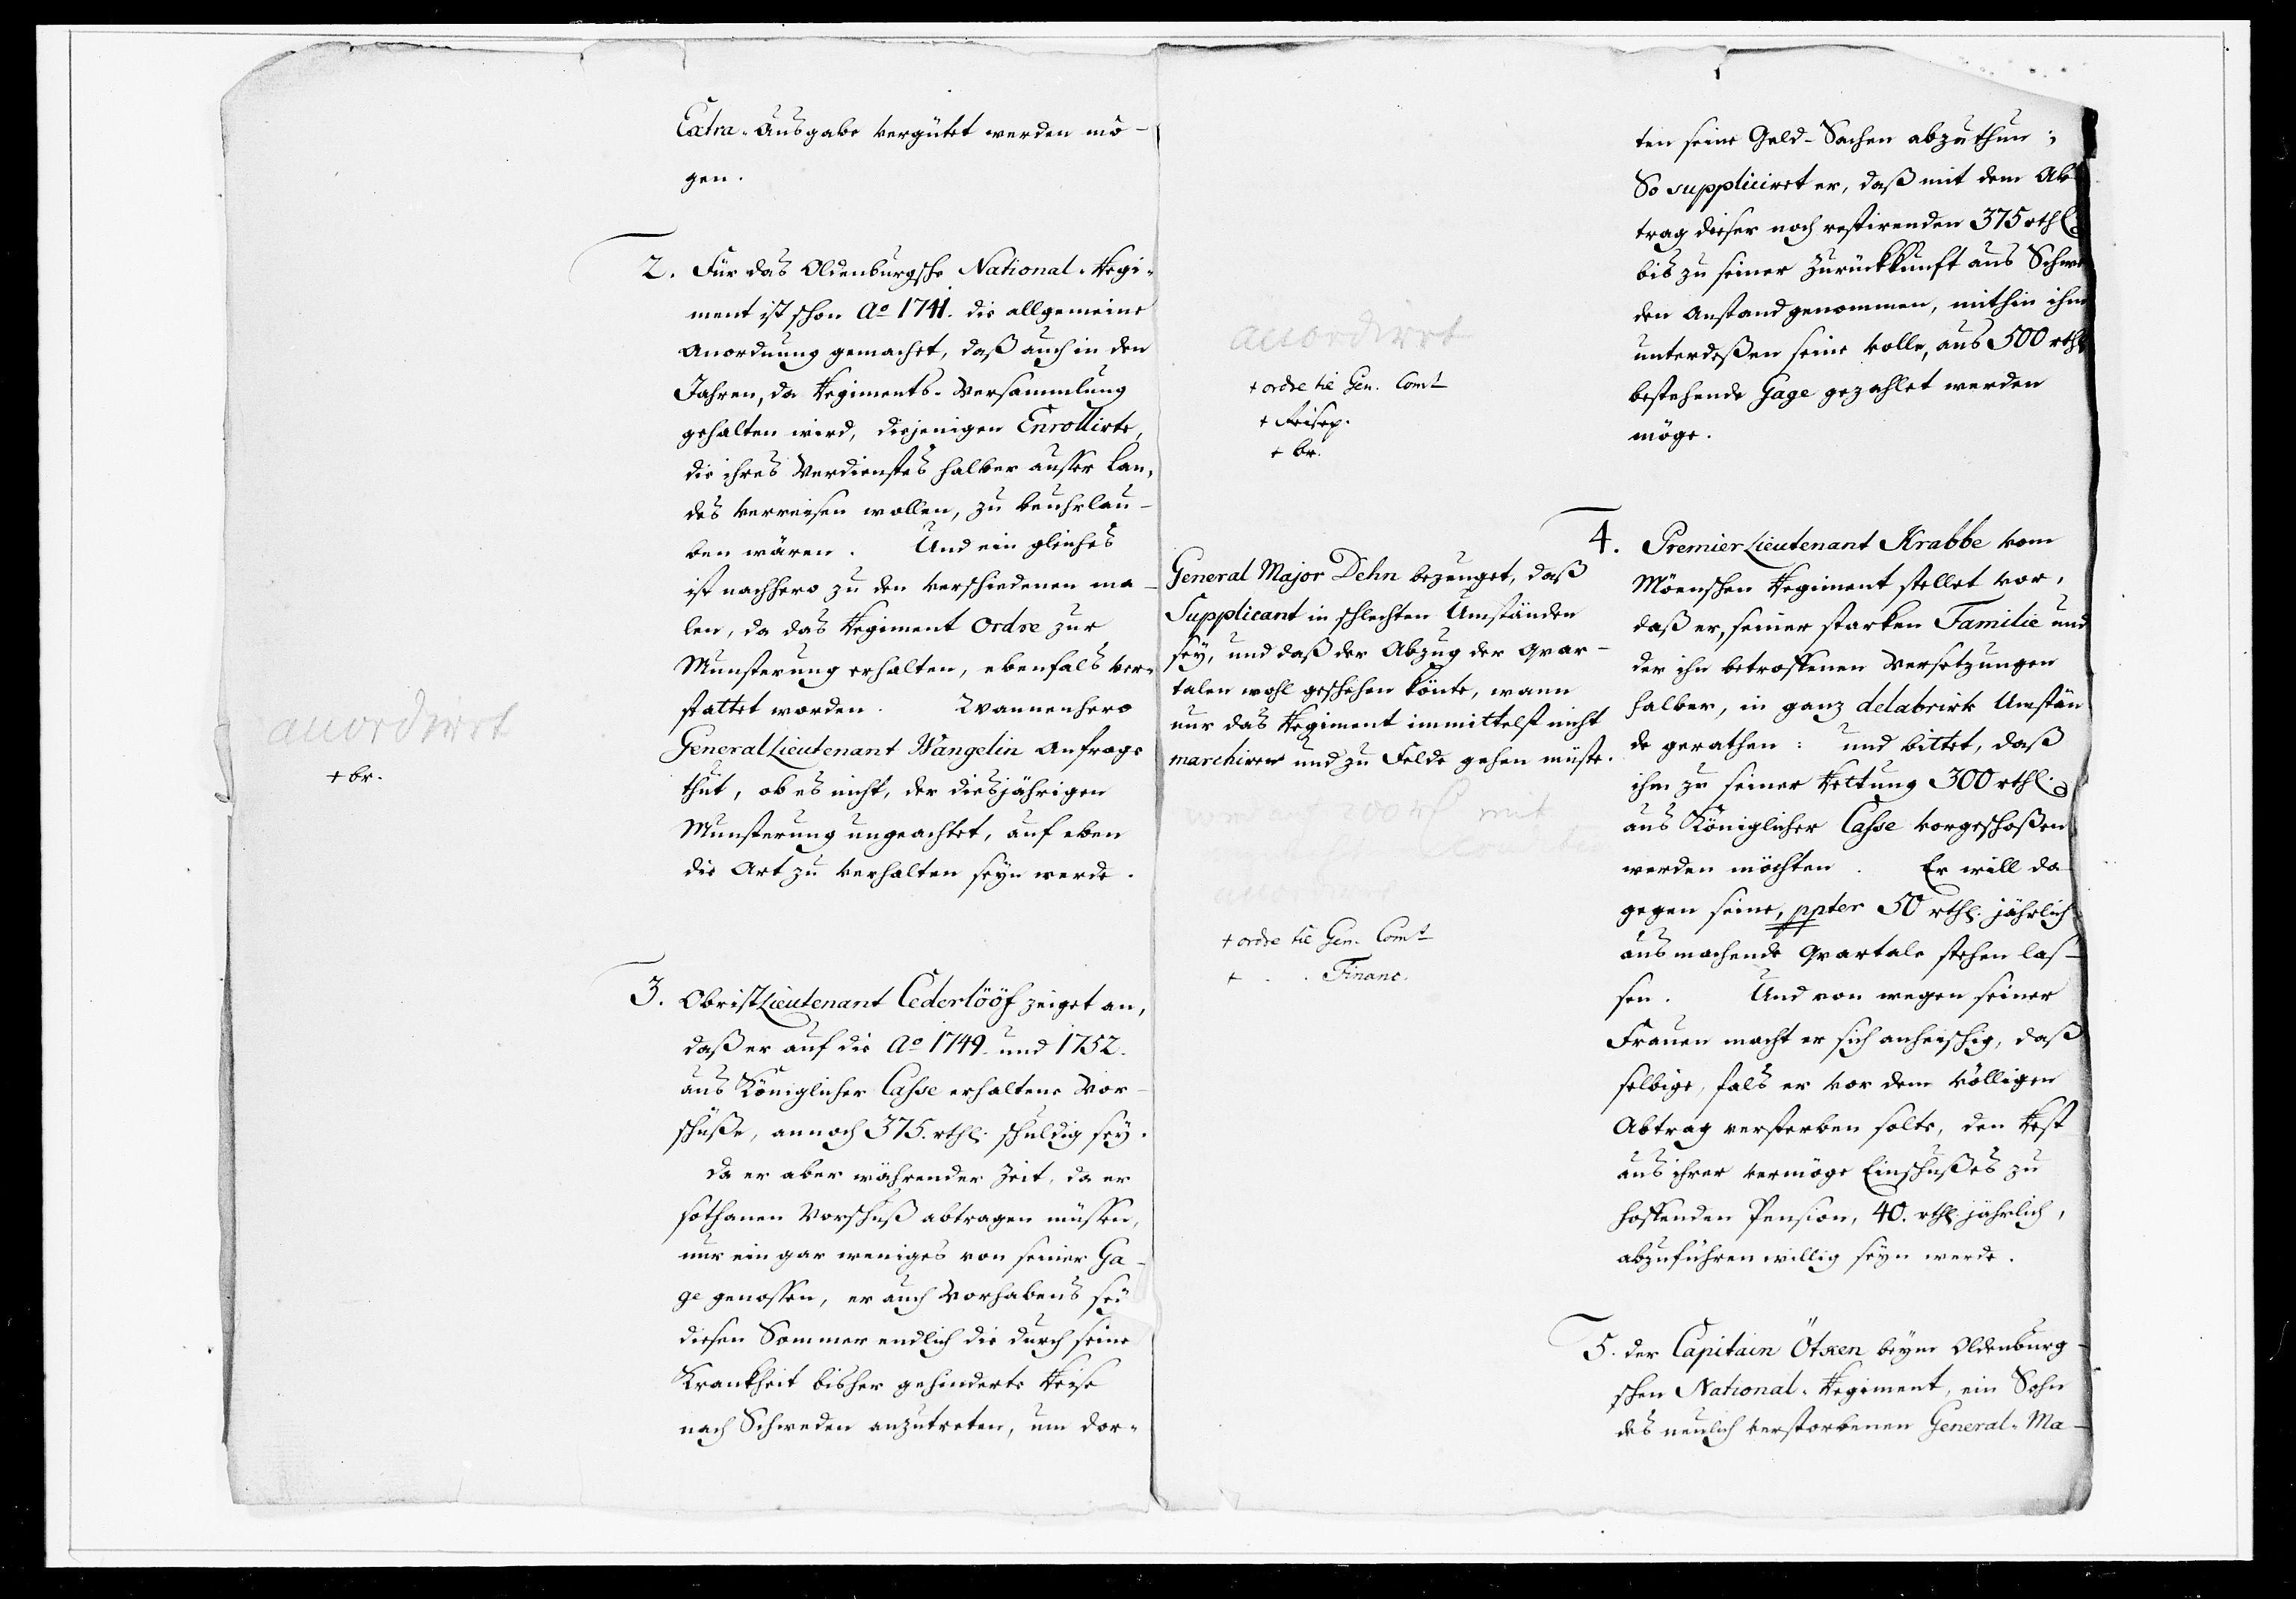 Extra-Ausgabe vergütet werden mö-
gen.
2. Für das Oldenburgsche National-Regi-
ment ist schon Ao 1741. die allgemeine
Anordnung gemachet, daß auch in den
Jahren, da Regiments-Versammlung
gehalten wird, diejenigen Enrollirte,
die ihres Verdienstes halber ausser Lan-
des verreisen wollen, zu beuhrlau-
ben wären. Und ein gleiches
ist nachhero zu den verschiedenen ma-
len, da das Regiment Ordre zur
Munsterung erhalten, ebenfals ver-
stattet worden. Wannenhero
General Lieutenant Wangelin Anfrage
thut, ob es nicht, der diesjährigen
Munsterung ungeachtet, auf eben
die Art zu verhalten seyn werde.
accordiret
+ br.
3. Obrist Lieutenant Cederlööf zeiget an,
daß er auf die Ao 1749. und 1752.
aus Königlicher Casse erhaltene Vor-
schüße, annoch 375. rthl. schuldig sey.
da er aber währender Zeit, da er
sothanen Vorschuß abtragen müssen,
nur ein gar weniges von seiner Ga-
ge genossen, er auch Vorhabens sey
diesen Sommer endlich die durch seine
Krankheit bisher gehinderte Reise
nach Schweden anzutreten, um dor-
ten seine Geld-Sachen abzuthun;
So suppliciret er, daß mit dem Ab-
trag dieser noch restirenden 375 rthl.
bis zu seiner Zurückkunft aus Schwe
den Anstand genommen, mithin ihm
unterdeßen seine volle, aus 500 rthl
bestehende Gage gezahlet werden
möge.
accordiret
+ ordre til Gen. Comt
+ Reisep.
+ br.
4. Premier Lieutenant Krabbe vom
Möenschen Regiment stellet vor,
daß er, seiner starken Familie und
der ihn betroffenen Versetzungen
halber, in ganz delabrirte Umstän
de gerathen: und bittet, daß
ihm zu seiner Rettung 300 rthl.
aus Königlicher Casse vorgeschoßen
werden möchten. Er will da-
gegen seine, ppter 50 rthl. jährlich
ausmachende Quartale stehen las-
sen. Und von wegen seiner
Frauen macht er sich anheischig, daß
selbige, fals er vor dem völligen
Abtrag versterben solte, den Rest
aus ihrer vermöge Einschußes zu
hoffenden Pension, 40. rthl. jährlich,
abzuführen willig seyn werde.
General Major Dehn bezeuget, daß
Supplicant in schlechten Umständen
sey, und daß der Abzug der Quar-
talen wohl geschehen könte, wann
nur das Regiment immittelst nicht
marchiren und zu Felde gehen müste.
auf 200 rf mit
accordiret
+ ordre til Gen. Comt
+ . . Financ.
5. der Capitain Ötken beym Oldenburg-
schen National-Regiment, ein Sohn
des neulich verstorbenen General-Ma-